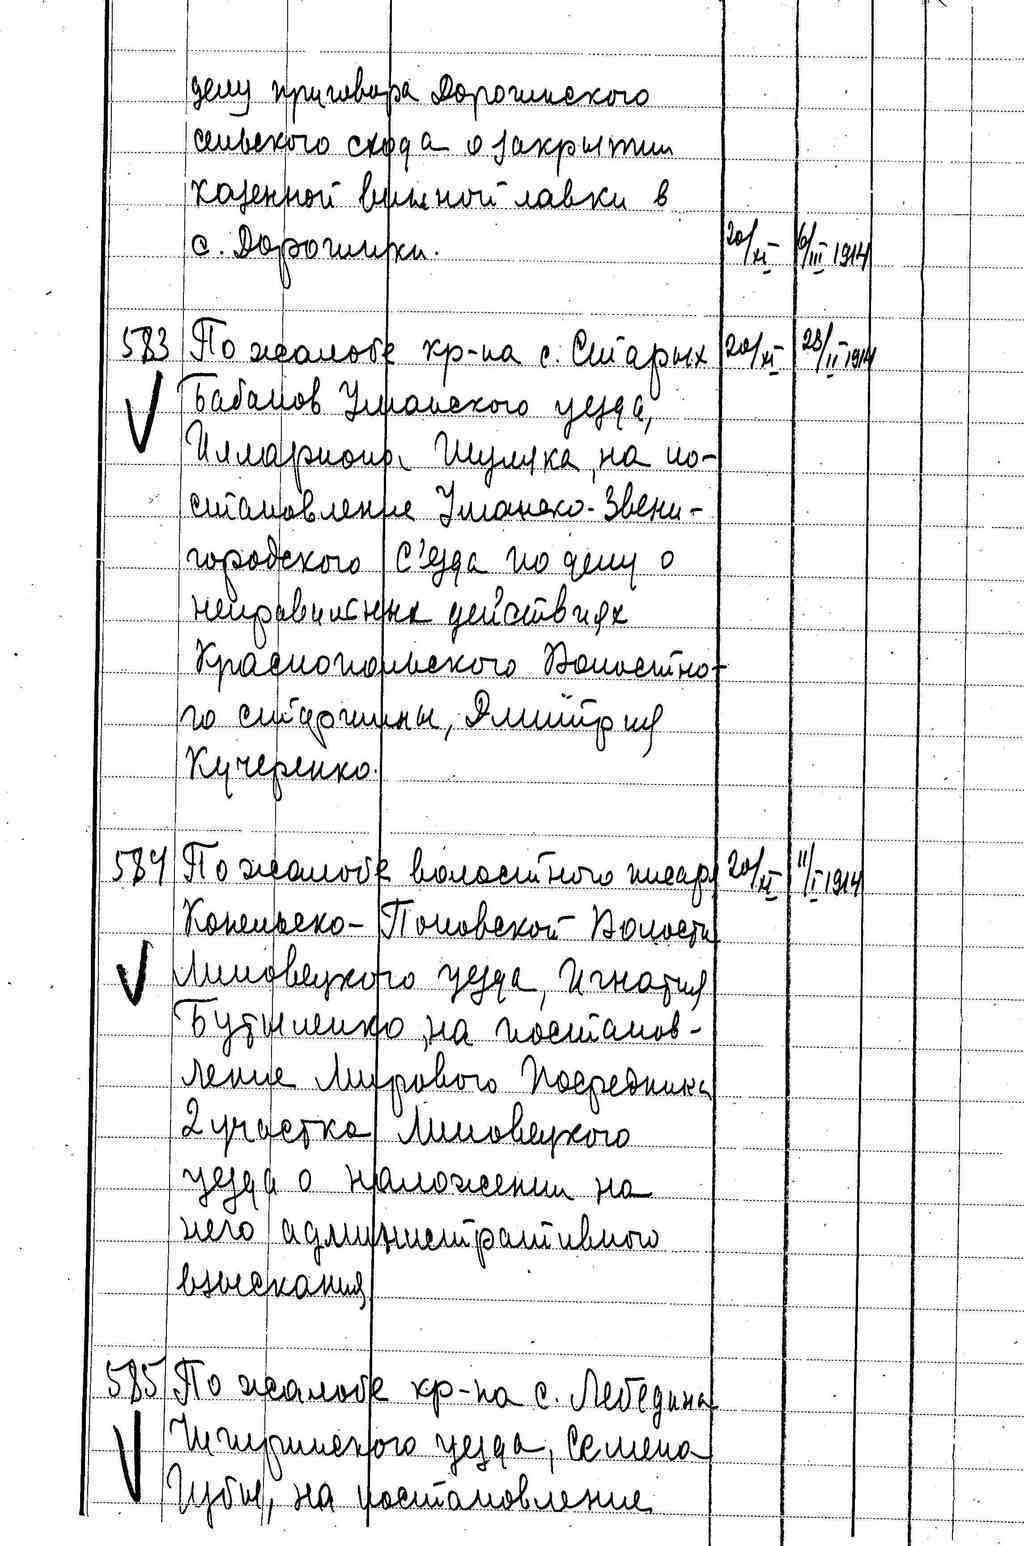 делу приговора Дорогинского
сельского схода о закрытии
казенной винной лавки в
с. Дорогинки. 20/XI 6/III 1914
583 По жалобе кр-на с. Старых 20/XI 28/II 1914
Бабанов Уманского уезда,
Иллариона Шуляка, на по-
становление Уманско-Звени-
городского С'езда по делу о
неправильных действиях
Краснопольского Волостно-
го старшины, Дмитрия
Кучеренко.
584 По жалобе волостного писаря 20/XI 11/I 1914
Конельско-Поповской Волости
Липовецкого уезда, Игнатия
на постанов-
ление Мирового Посредника
2 участка Липовецкого
уезда о наложении на
него административного
взыскания
585 По жалобе кр-на с. Лебедина
Чигиринского уезда, Семена
Чубы, на постановление